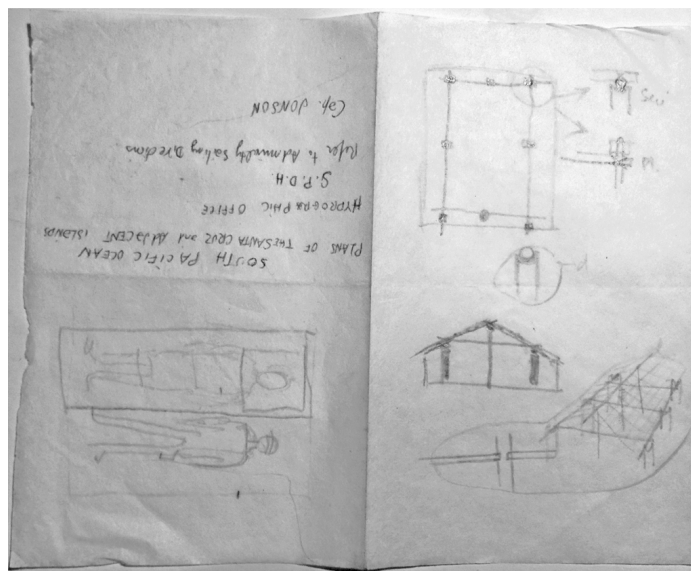 SOUTH PACIFIC OCEAN
PLANS OF THE SANTA CRUZ and ADJACENT ISLANDS
HYDROGRAPHIC OFFICE
S.P.D.H.
Refer to Admiralty Sailing Directions
Cap. JONSON